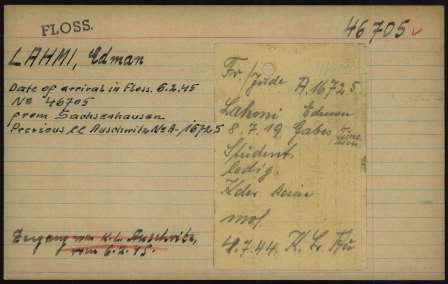 FLOSS.
46705
LAHMI, Edman
Date of arrival in Floss. 6.2.45
No 46705
from Sachsenhausen
Previous CC Auschwitz No A-16725
Zugang vom K.L. Auschwitz,
vom 6.2.45.
Fr/Jude A.16725
Lahmi Edman
8.7.19 Gabes
Student
ledig.
Kder keine
mos.
4.7.44.